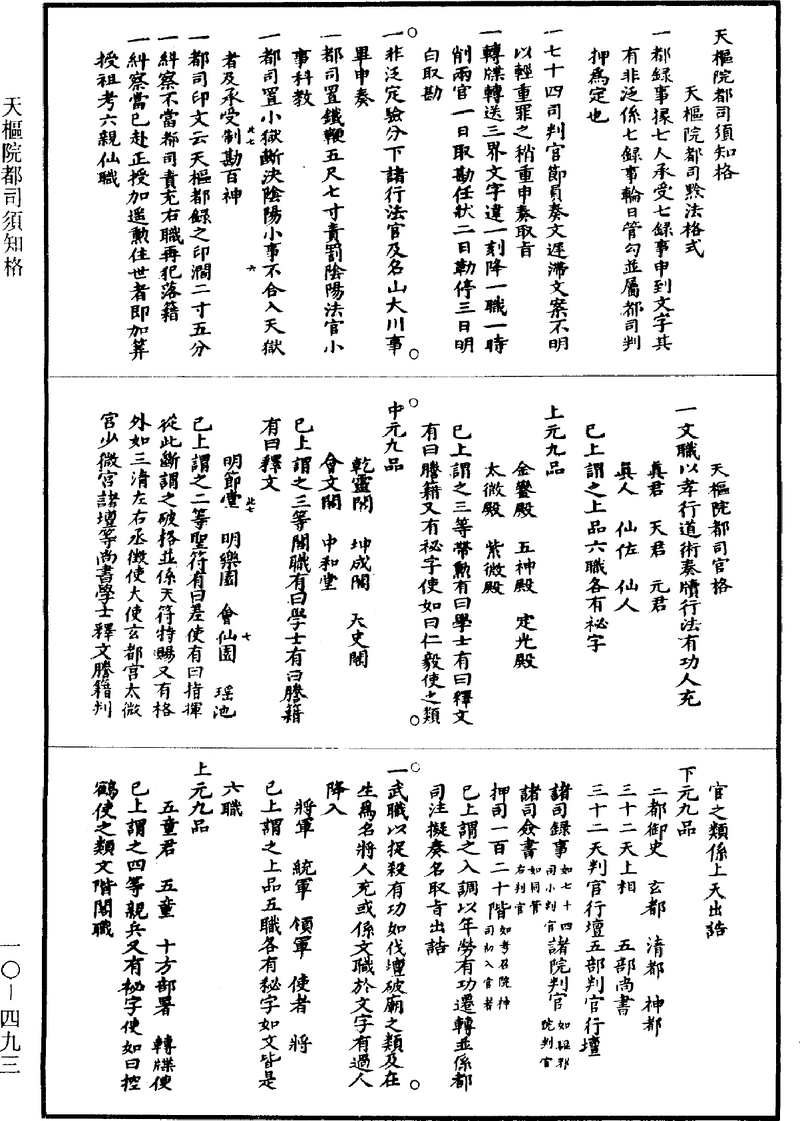 天樞院都司須知格
天樞院都司黙法格式
一都録事掾七人承受七録事申到文字其
有非泛係七録事輪日管勾並屬都司判
押爲定也
一七十四司判官節員奏文遲滯文案不明
以輕重罪之稍重申奏取旨
一轉牒轉送三界文字違一刻降一職一時
削兩官一日取勘任狀二日勒停三日明
白取勘
一非泛定驗分下諸行法官及名山大川事
畢申奏
一都司置鐵鞭五尺七寸責罰陰陽法官小
事科教
一都司置小獄斷決陰陽小事不合入天獄
者及承受制勘百神
一都司印文云天樞都録之印濶二寸五分
一糾察不當都司責充右職再犯落籍
一糾察當已赴正授加遥勳住世者即加算
授祖考六親仙職
天樞院都司官格
一文職以孝行道術奏牘行法有功人充
眞君 天君 元君
眞人 仙佐 仙人
已上謂之上品六職各有祕字
上元九品
金鑾殿 五神殿 定光殿
太微殿 紫微殿
已上謂之三等帶勳有曰學士有曰釋文
有曰謄籍又有祕字使如曰仁毅使之類
中元九品
乾靈閣 坤成閣 天史閣
會文閣 中和堂
已上謂之三等閣職有曰學士有曰謄籍
有曰釋文
明節堂 明樂園 會仙園 瑶池
已上謂之二等聖符有曰差使有曰指揮
從此斷謂之破格並係天符特賜又有格
外如三清左右丞微使大使玄都宮太微
宮少微宮諸壇等尚書學士釋文謄籍判
官之類係上天出誥
下元九品
二都御史 玄都 清都 神都
三十二天上相 五部尚書
三十二天判官行壇五部判官行壇
諸司録事如七十四司小判官諸院判官如驅邪院判官
諸司僉書如同管右判官
押司一百二十階如考召院神司初入官者
已上謂之入調以年勞有功遷轉並係都
司注擬奏名取旨出誥
一武職以捉殺有功如伐壇破廟之類及在
生爲名將人充或係文職於文字有過人
降入
將軍 統軍 領軍 使者 將
已上謂之上品五職各有祕字如文皆是
六職
上元九品
五童君 五童 十方部署 轉牒使
已上謂之四等親兵又有祕字使如曰控
鶴使之類文階閣職
天樞院都司須知格
一〇－四九三